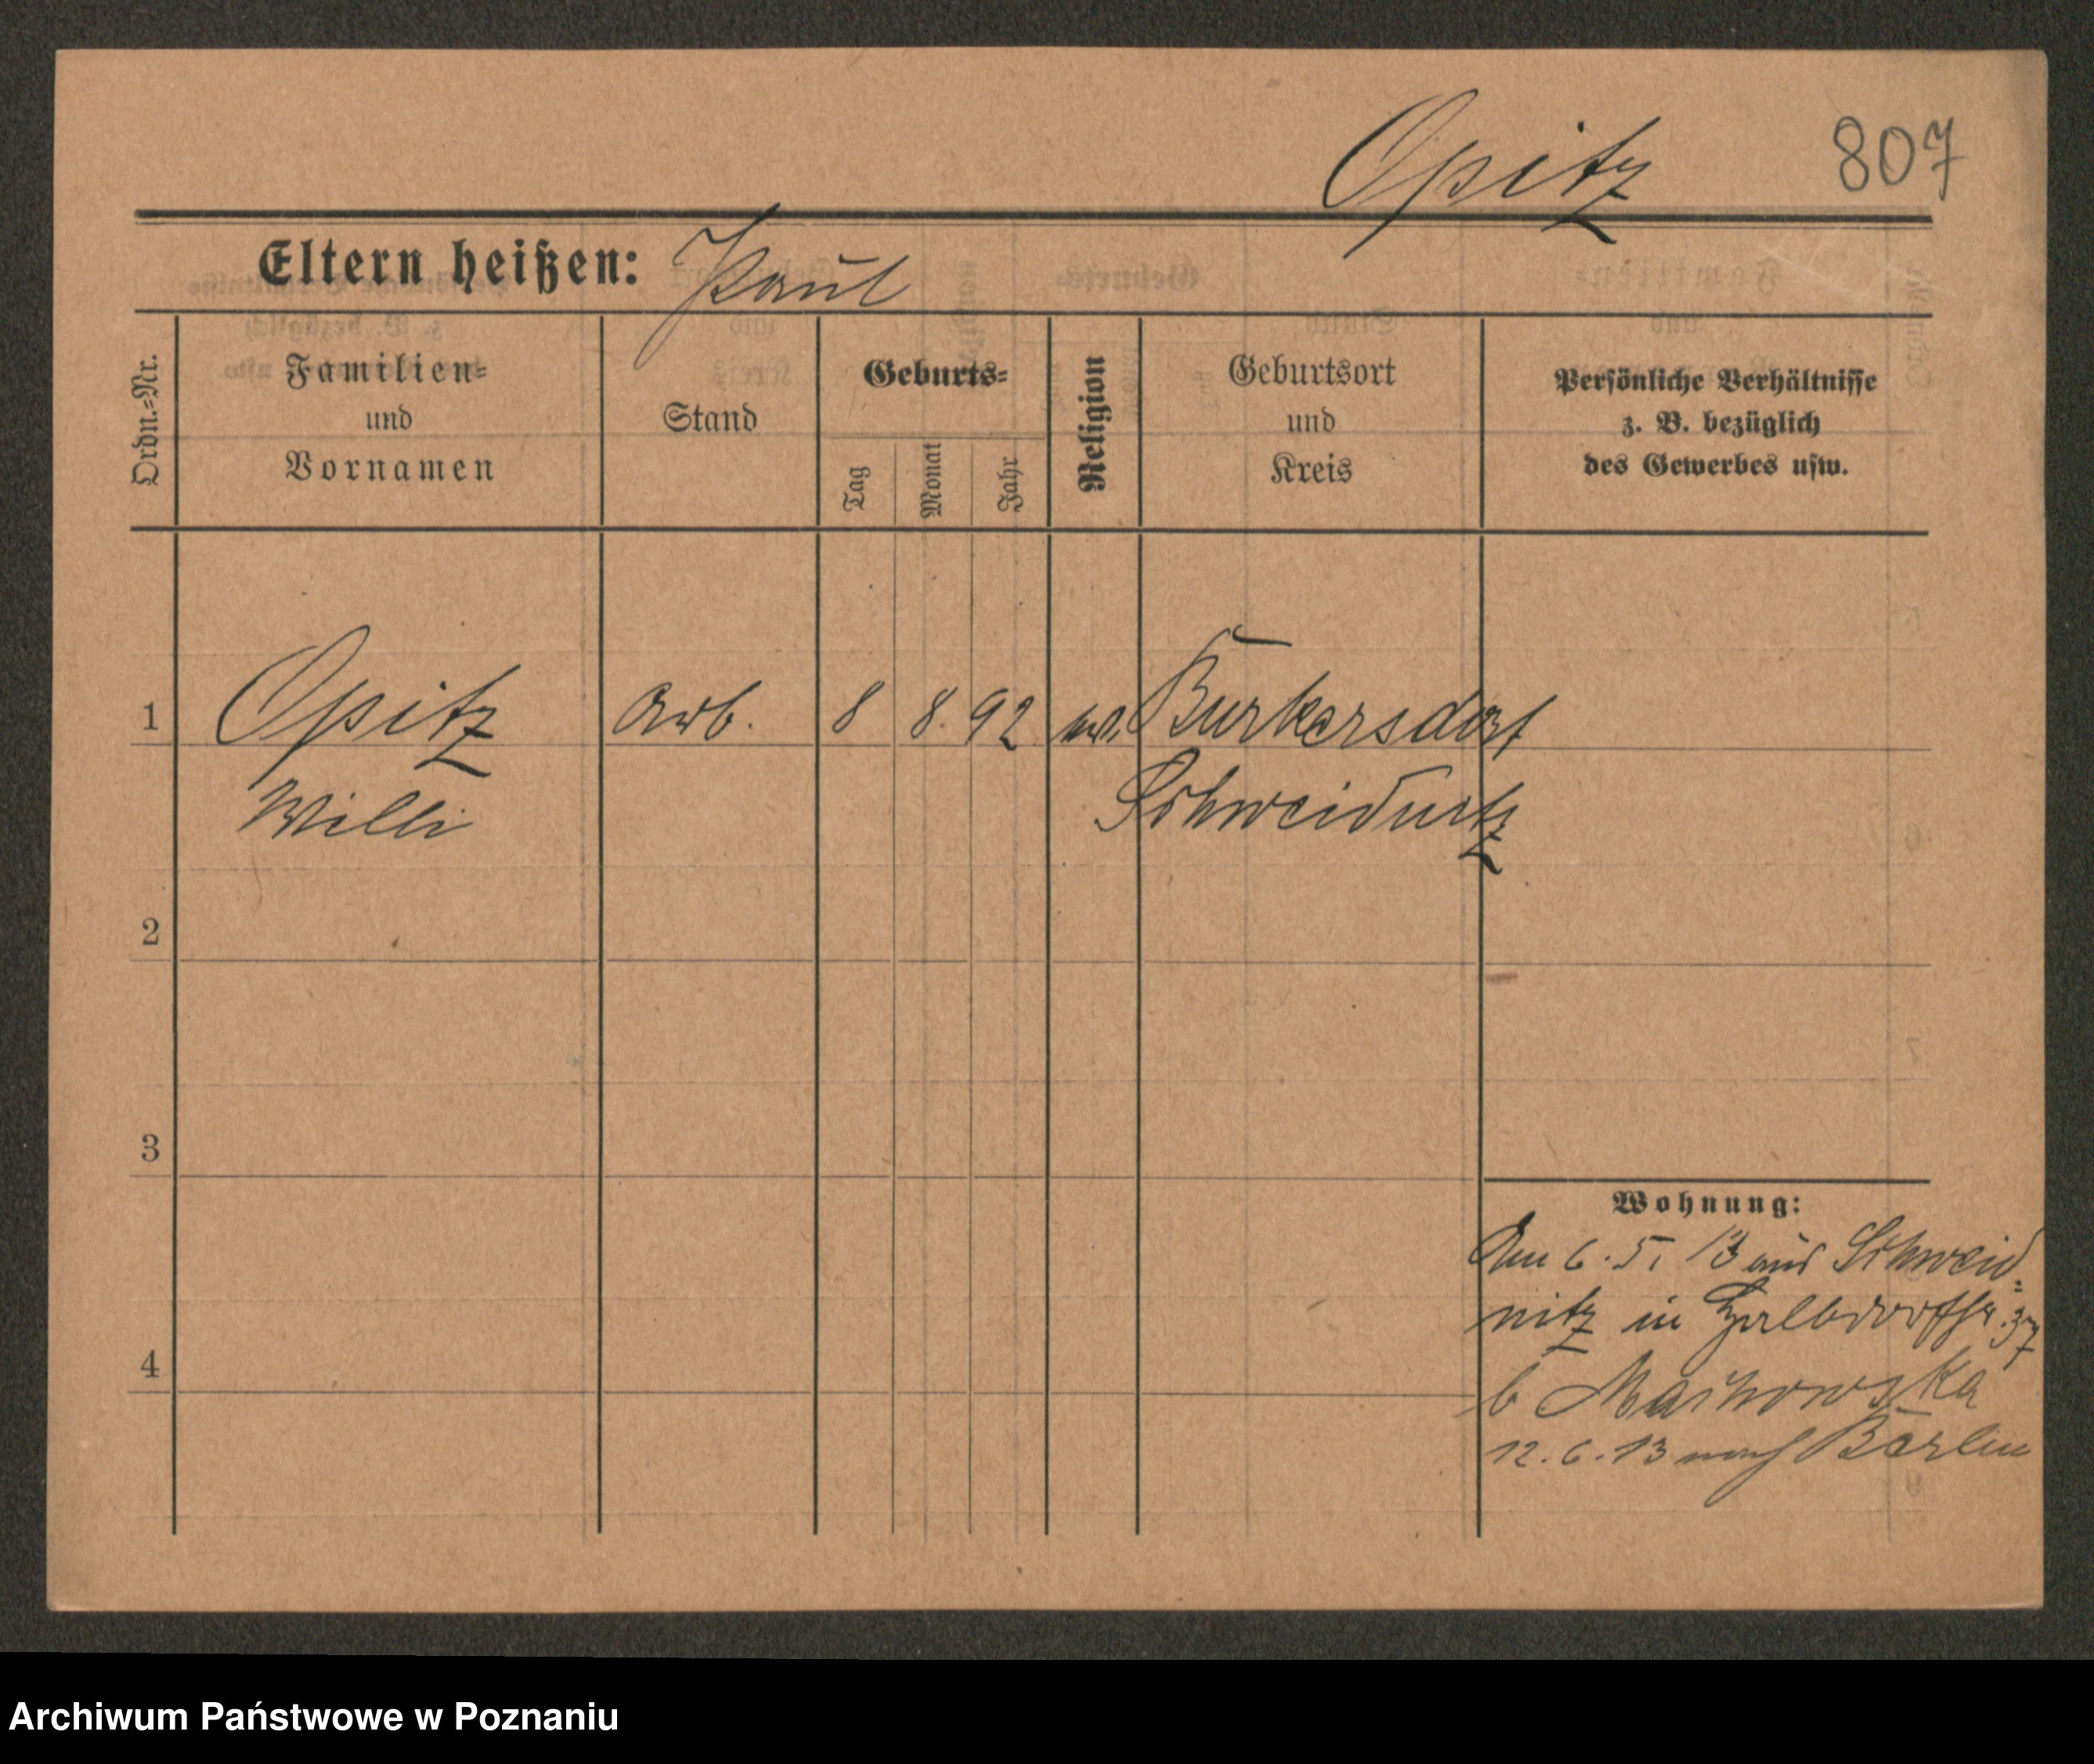 Opitz 807
Eltern heißen: Paul
Ordn.=Nr.
Familien=
und
Vornamen
Stand
Geburts=
Tag
Monat
Jahr
Religion
Geburtsort
und
Kreis
Persönliche Verhältnisse
z. B. bezüglich
des Gewerbes usw.
1 Opitz Arb. 8 8. 92 Burkersdorf
Willi Schweidnitz
2
3
4
Wohnung:
Am 6. 5. 13 aus Schweid=
nitz in Halbdorfstr. 37
b
12. 6. 13 nach Berlin
Archiwum Państwowe w Poznaniu